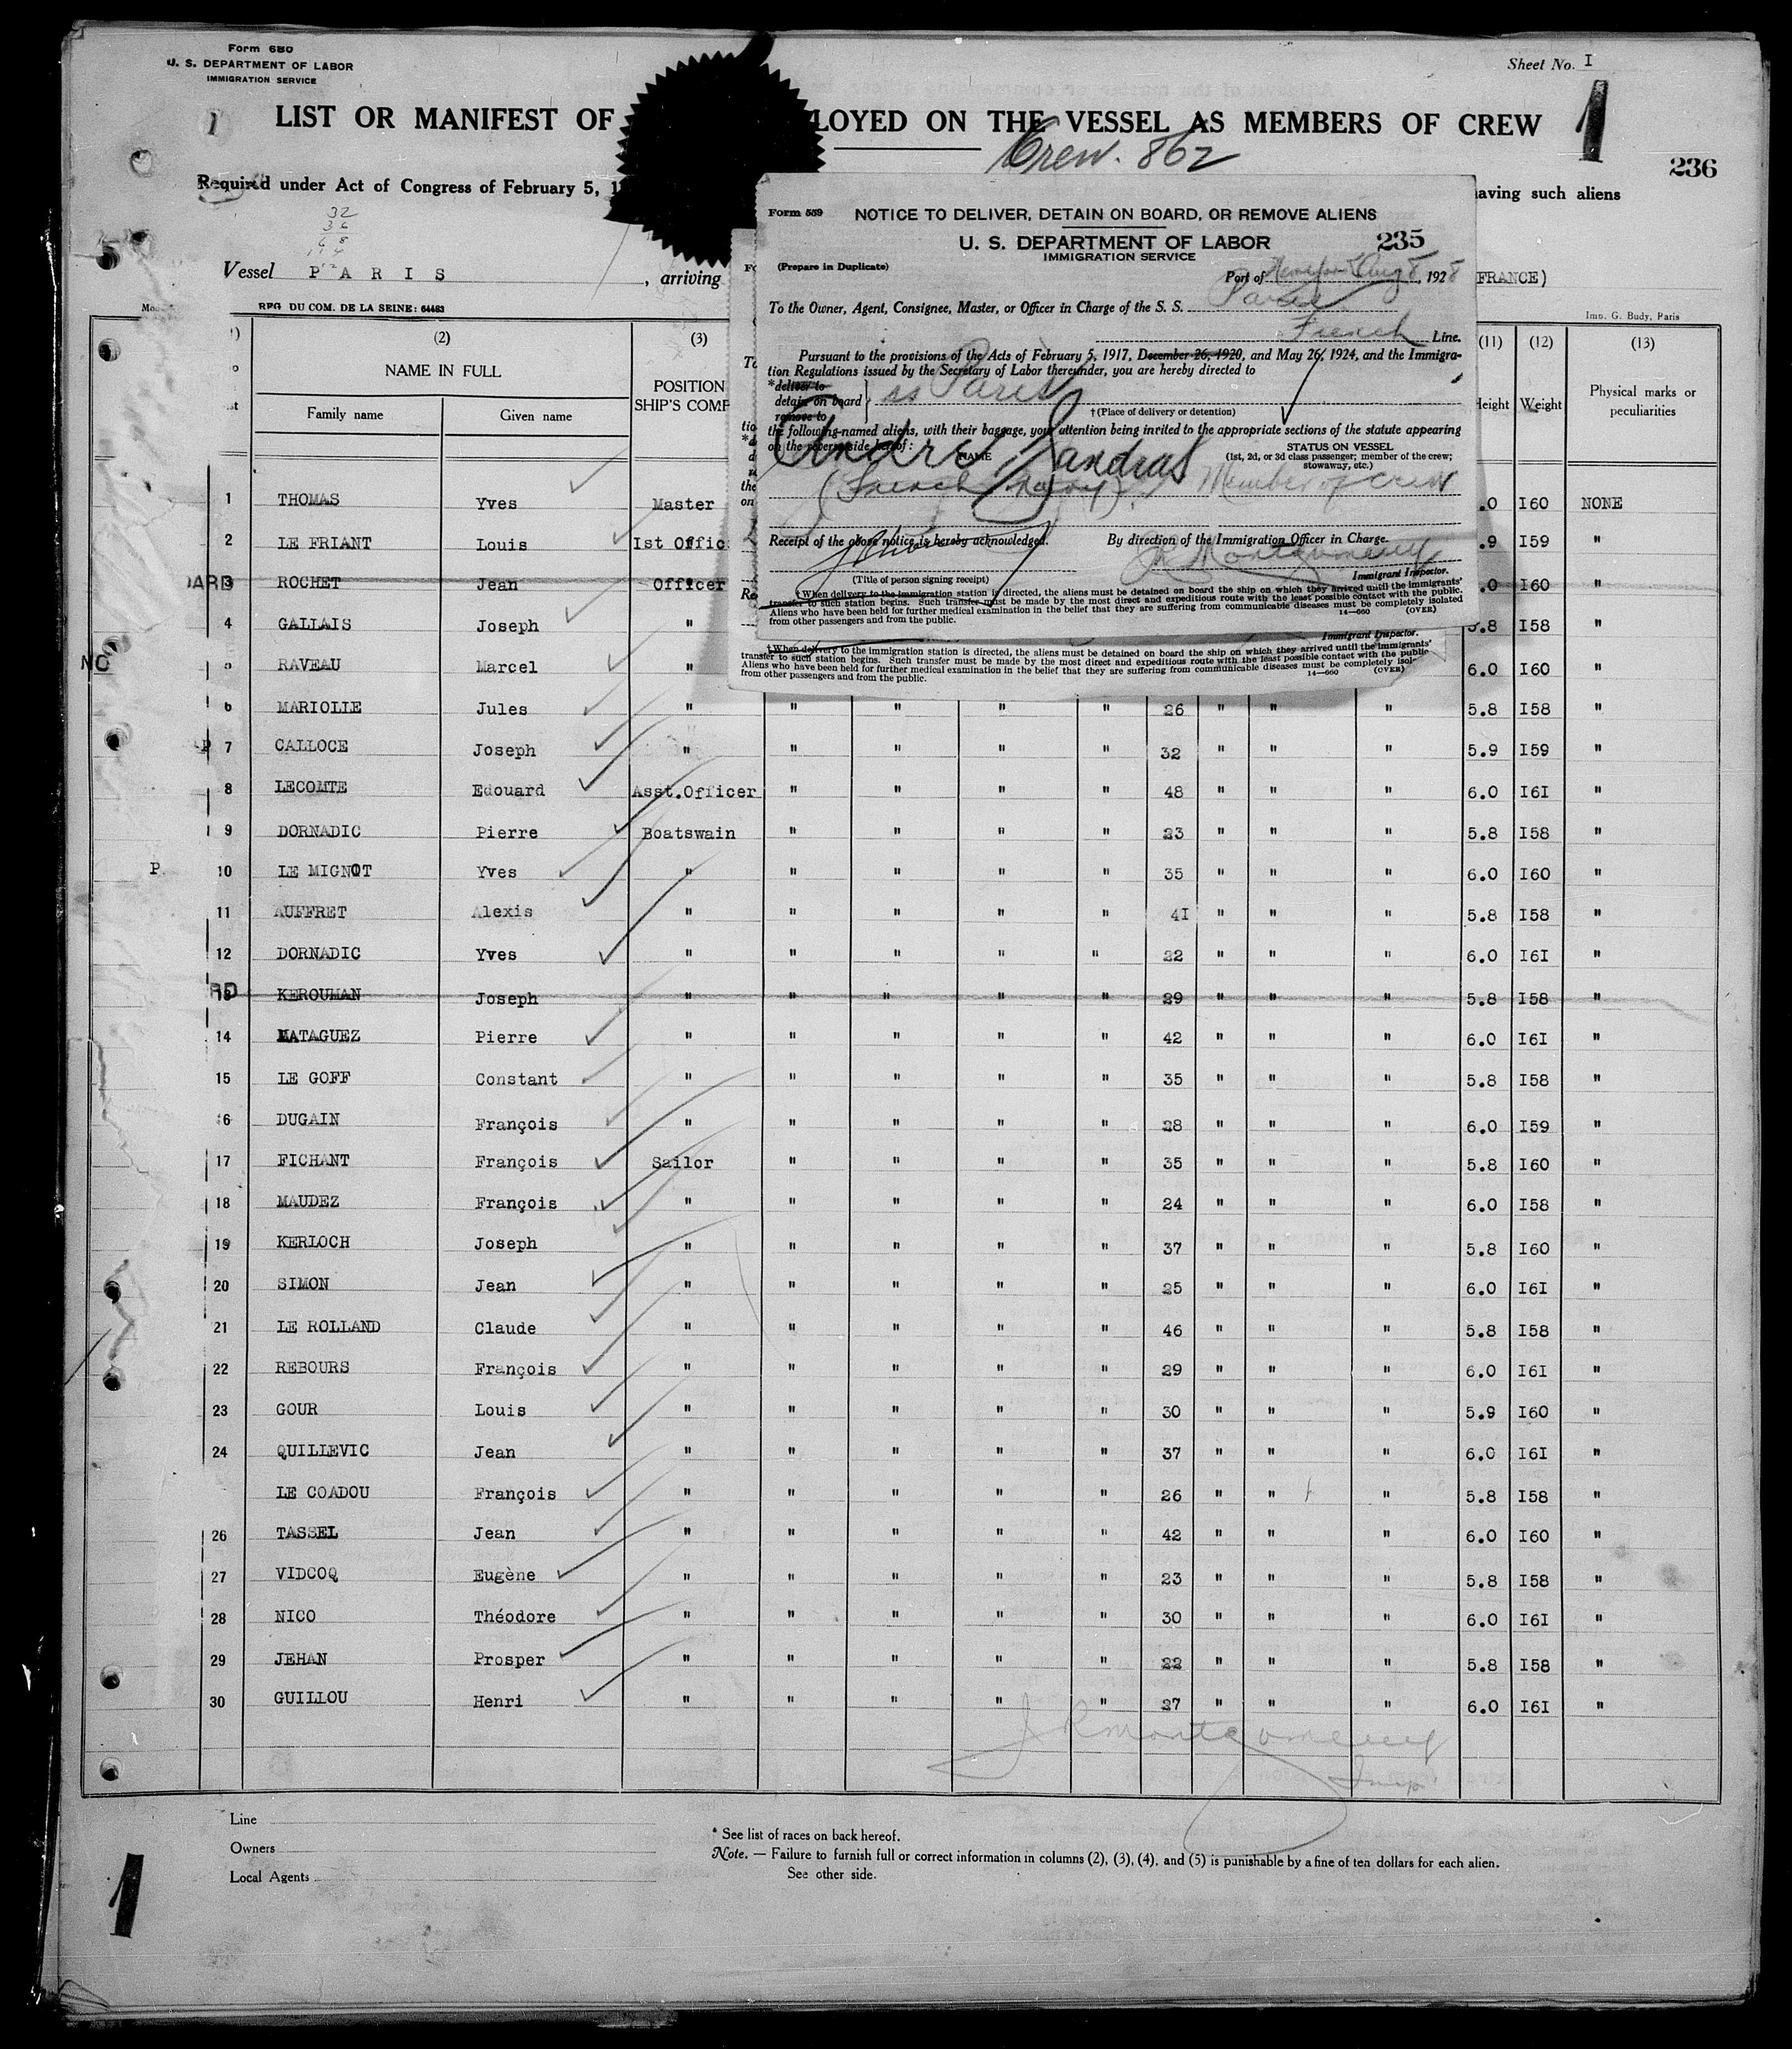 Form 680
U. S. DEPARTMENT OF LABOR
IMMIGRATION SERVICE
Sheet No. I
1
LIST OR MANIFEST OF LOYED ON THE VESSEL AS MEMBERS OF CREW
1
Crew. 862
236
Required under Act of Congress of February 5, 1 having such aliens
32
36
68
Vessel PARIS , arriving FRANCE)
RPG DU COM. DE LA SEINE: 64483
Imp. G. Budy, Paris
Form 559 NOTICE TO DELIVER, DETAIN ON BOARD, OR REMOVE ALIENS
U. S. DEPARTMENT OF LABOR 235
IMMIGRATION SERVICE
(Prepare in Duplicate)
Port of New York Aug 8, 1928
To the Owner, Agent, Consignee, Master, or Officer in Charge of the S. S. Paris
French Line.
Pursuant to the provisions of the Acts of February 5, 1917, December 26, 1920, and May 26, 1924, and the Immigra-
tion Regulations issued by the Secretary of Labor thereunder, you are hereby directed to
*deliver to
detain on board } ss Paris
remove to
†(Place of delivery or detention)
the following-named aliens, with their baggage, your attention being invited to the appropriate sections of the statute appearing
on the reverse side hereof:
NAME
STATUS ON VESSEL
(1st, 2d, or 3d class passenger; member of the crew;
stowaway, etc.)
André Jandras
(French Navy) Member of Crew
Receipt of the above notice is hereby acknowledged. By direction of the Immigration Officer in Charge.
JR Montgomery
(Title of person signing receipt) Immigrant Inspector.
†When delivery to the immigration station is directed, the aliens must be detained on board the ship on which they arrived until the immigrants'
transfer to such station begins. Such transfer must be made by the most direct and expeditious route with the least possible contact with the public.
Aliens who have been held for further medical examination in the belief that they are suffering from communicable diseases must be completely isolated
from other passengers and from the public. 14—660 (OVER)
Immigrant Inspector.
†When delivery to the immigration station is directed, the aliens must be detained on board the ship on which they arrived until the immigrants'
transfer to such station begins. Such transfer must be made by the most direct and expeditious route with the least possible contact with the public
Aliens who have been held for further medical examination in the belief that they are suffering from communicable diseases must be completely isol-
from other passengers and from the public. 14—660 (OVER)
(2) (3) (11) (12) (13)
NAME IN FULL POSITION Height Weight Physical marks or
SHIP'S COMP peculiarities
Family name Given name
1 THOMAS Yves Master .0 I60 NONE
2 LE FRIANT Louis Ist Offic .9 I59 "
3 ROCHET Jean Officer .0 I60 "
4 GALLAIS Joseph " 5.8 I58 "
5 RAVEAU Marcel " 6.0 I60 "
6 MARIOLLE Jules " " " " " 26 " " " 5.8 I58 "
7 CALLOCE Joseph " " " " " 32 " " " 5.9 I59 "
8 LECOMTE Edouard Asst.Officer " " " " 48 " " " 6.0 I6I "
9 DORNADIC Pierre Boatswain " " " " 23 " " " 5.8 I58 "
10 LE MIGNOT Yves " " " " " 35 " " " 6.0 I60 "
11 AUFFRET Alexis " " " " " 4I " " " 5.8 I58 "
12 DORNADIC Yves " " " " " 22 " " " 6.0 I6I "
13 KEROUMAN Joseph " " " " " 29 " " " 5.8 I58 "
14 MATAGUEZ Pierre " " " " " 42 " " " 6.0 I6I "
15 LE GOFF Constant " " " " " 35 " " " 5.8 I58 "
16 DUGAIN François " " " " " 28 " " " 6.0 I59 "
17 FICHANT François Sailor " " " " 35 " " " 5.8 I60 "
18 MAUDEZ François " " " " " 24 " " " 6.0 I58 "
19 KERLOCH Joseph " " " " " 37 " " " 5.8 I60 "
20 SIMON Jean " " " " " 25 " " " 6.0 I6I "
21 LE ROLLAND Claude " " " " " 46 " " " 5.8 I58 "
22 REBOURS François " " " " " 29 " " " 6.0 I6I "
23 GOUR Louis " " " " " 30 " " " 5.9 I60 "
24 QUILLEVIC Jean " " " " " 37 " " " 6.0 I6I "
LE COADOU François " " " " " 26 " " " 5.8 I58 "
26 TASSEL Jean " " " " " 42 " " " 6.0 I60 "
27 VIDCOQ Eugène " " " " " 23 " " " 5.8 I58 "
28 NICO Théodore " " " " " 30 " " " 6.0 I6I "
29 JEHAN Prosper " " " " " 22 " " " 5.8 I58 "
30 GUILLOU Henri " " " " " 27 " " " 6.0 I6I "
JR Montgomery
Insp
Line
Owners
Local Agents
* See list of races on back hereof.
Note. — Failure to furnish full or correct information in columns (2), (3), (4), and (5) is punishable by a fine of ten dollars for each alien.
See other side.
1